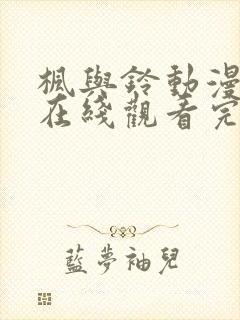 楓與鈴動漫
在綫觀看完
藍夢袖兒